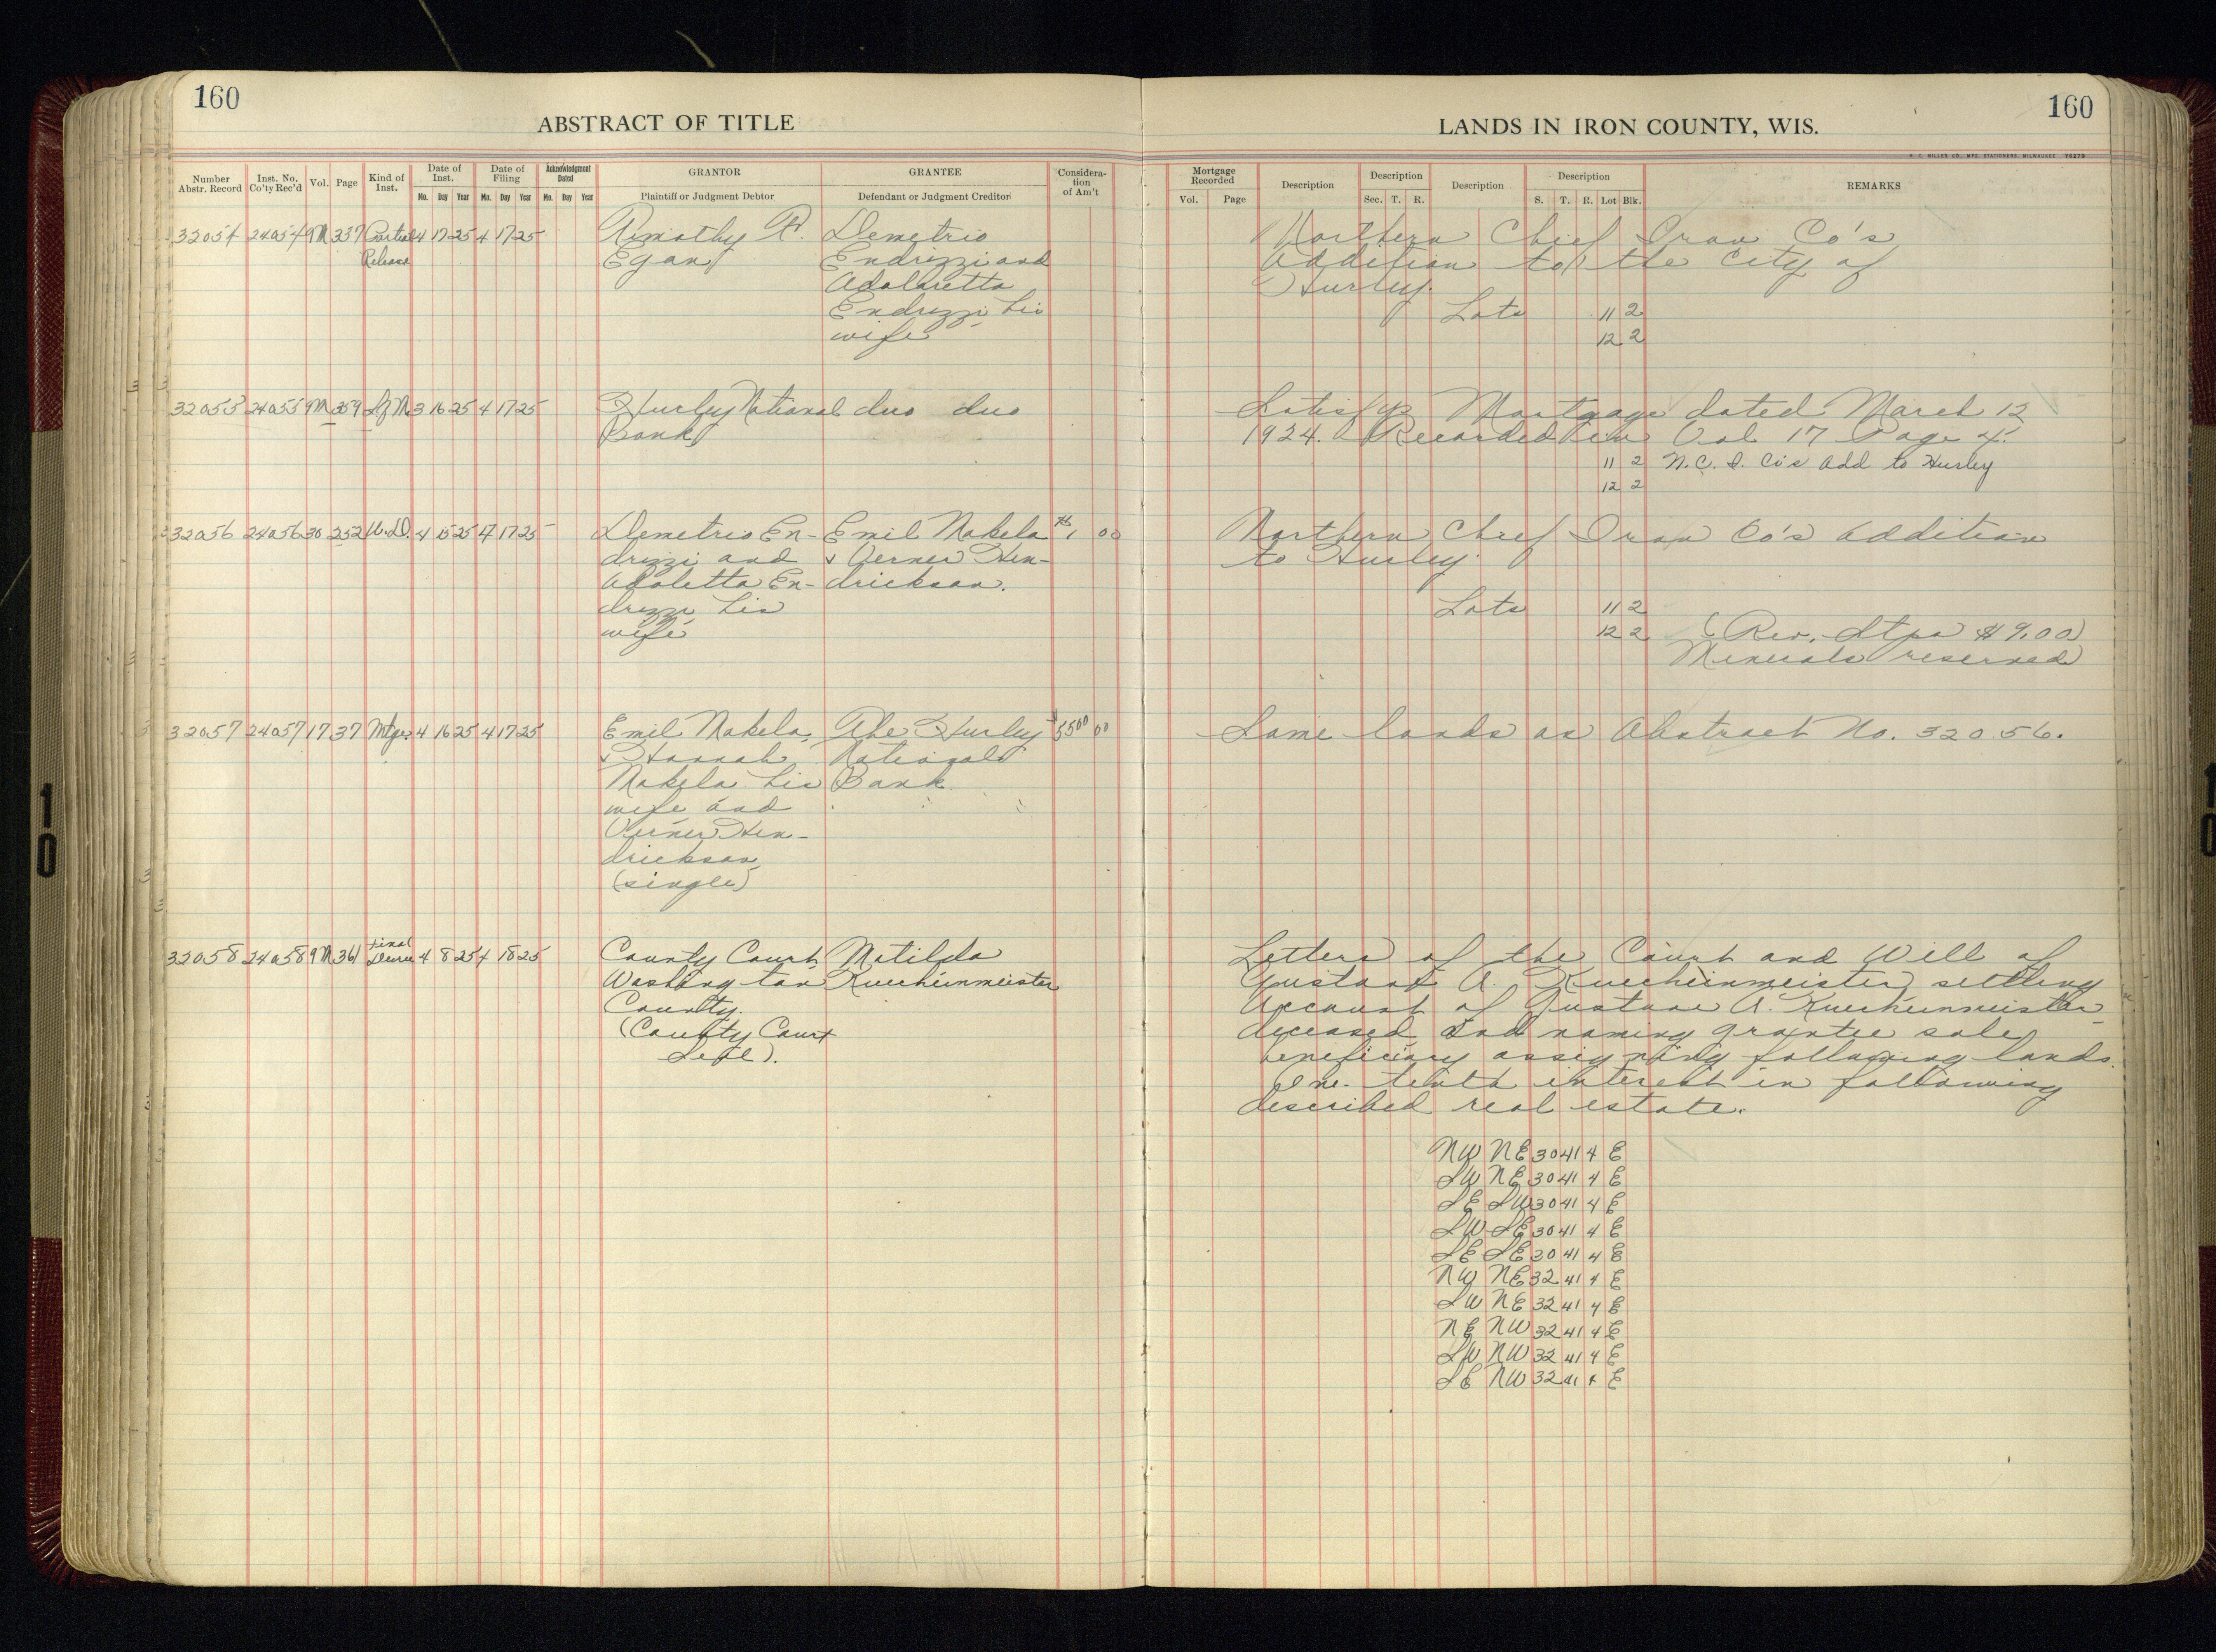 160
160
ABSTRACT OF TITLE
LANDS IN IRON COUNTY, WIS.
Number Abstr. Record
Inst. No. Co'ty Rec'd
Vol.
Page
Kind of Inst.
Date of Inst.
Mo. Day Year
Date of Filing
Mo. Day Year
Acknowledgment Dated
Mo. Day Year
GRANTOR
Plaintiff or Judgment Debtor
GRANTEE
Defendant or Judgment Creditor
Considera-
tion
of Am't
Mortgage Recorded
Vol. Page
Description
Description
Sec. T. R.
Description
Description
S. T. R. Lot Blk.
REMARKS
32054 24054 9M 357 Partial 4 17 25 4 17 25
Release
Timothy
Egan
Demetrio
Endrizzi and
Endrizzi his
wife
Northern Chief Iron Co's
Addition to the City of
Hurley.
Lots 11 2
12 2
32055 24055 9M 359 3 16 25 4 17 25
Hurley National
Bank
duo duo
Mortgage dated March 12
1924. Recorded in Vol 17 Page 4.
11 2 N.C.I. Co's Add to Hurley
12 2
32056 24056 30 252 W.D. 4 15 25 4 17 25
Demetrio En-
drizzi and
Adoletta En-
drizzi his
wife
Emil Makela
& Verner Hen-
drickson.
$1 00
Northern Chief Iron Co's Addition
to Hurley.
Lots 11 2
12 2 (Rev. Stps $9.00)
Minerals reserved
32057 24057 17 37 Mtge. 4 16 25 4 17 25
Emil Makela,
& Hannah
Makela his
wife and
Verner Hen-
drickson
(single)
The Hurley
National
Bank
$5500 00
Same lands as Abstract No. 32056.
32058 24058 9M 361 Final 4 8 25 4 18 25
Decree
County Court
Washington
County.
(County Court
Seal).
Matilda
Kuechenmeister
Letters of the Court and Will of
Gustave A. Kuechenmeister settling
Account of Gustave A. Kuechenmeister
deceased and naming grantee sole
beneficiary assigning following lands.
One-tenth interest in following
described real estate.
NW NE 30 41 4 E
SW NE 30 41 4 E
SE SW 30 41 4 E
SW SE 30 41 4 E
SE SE 30 41 4 E
NW NE 32 41 4 E
SW NE 32 41 4 E
NE NW 32 41 4 E
SW NW 32 41 4 E
SE NW 32 41 4 E
10